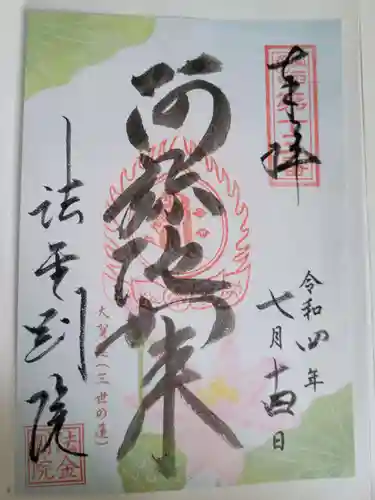 奉拝
令和四年
七月十四日
阿弥陀如来
大賀蓮(三世の蓮)
法金剛院
法金剛院